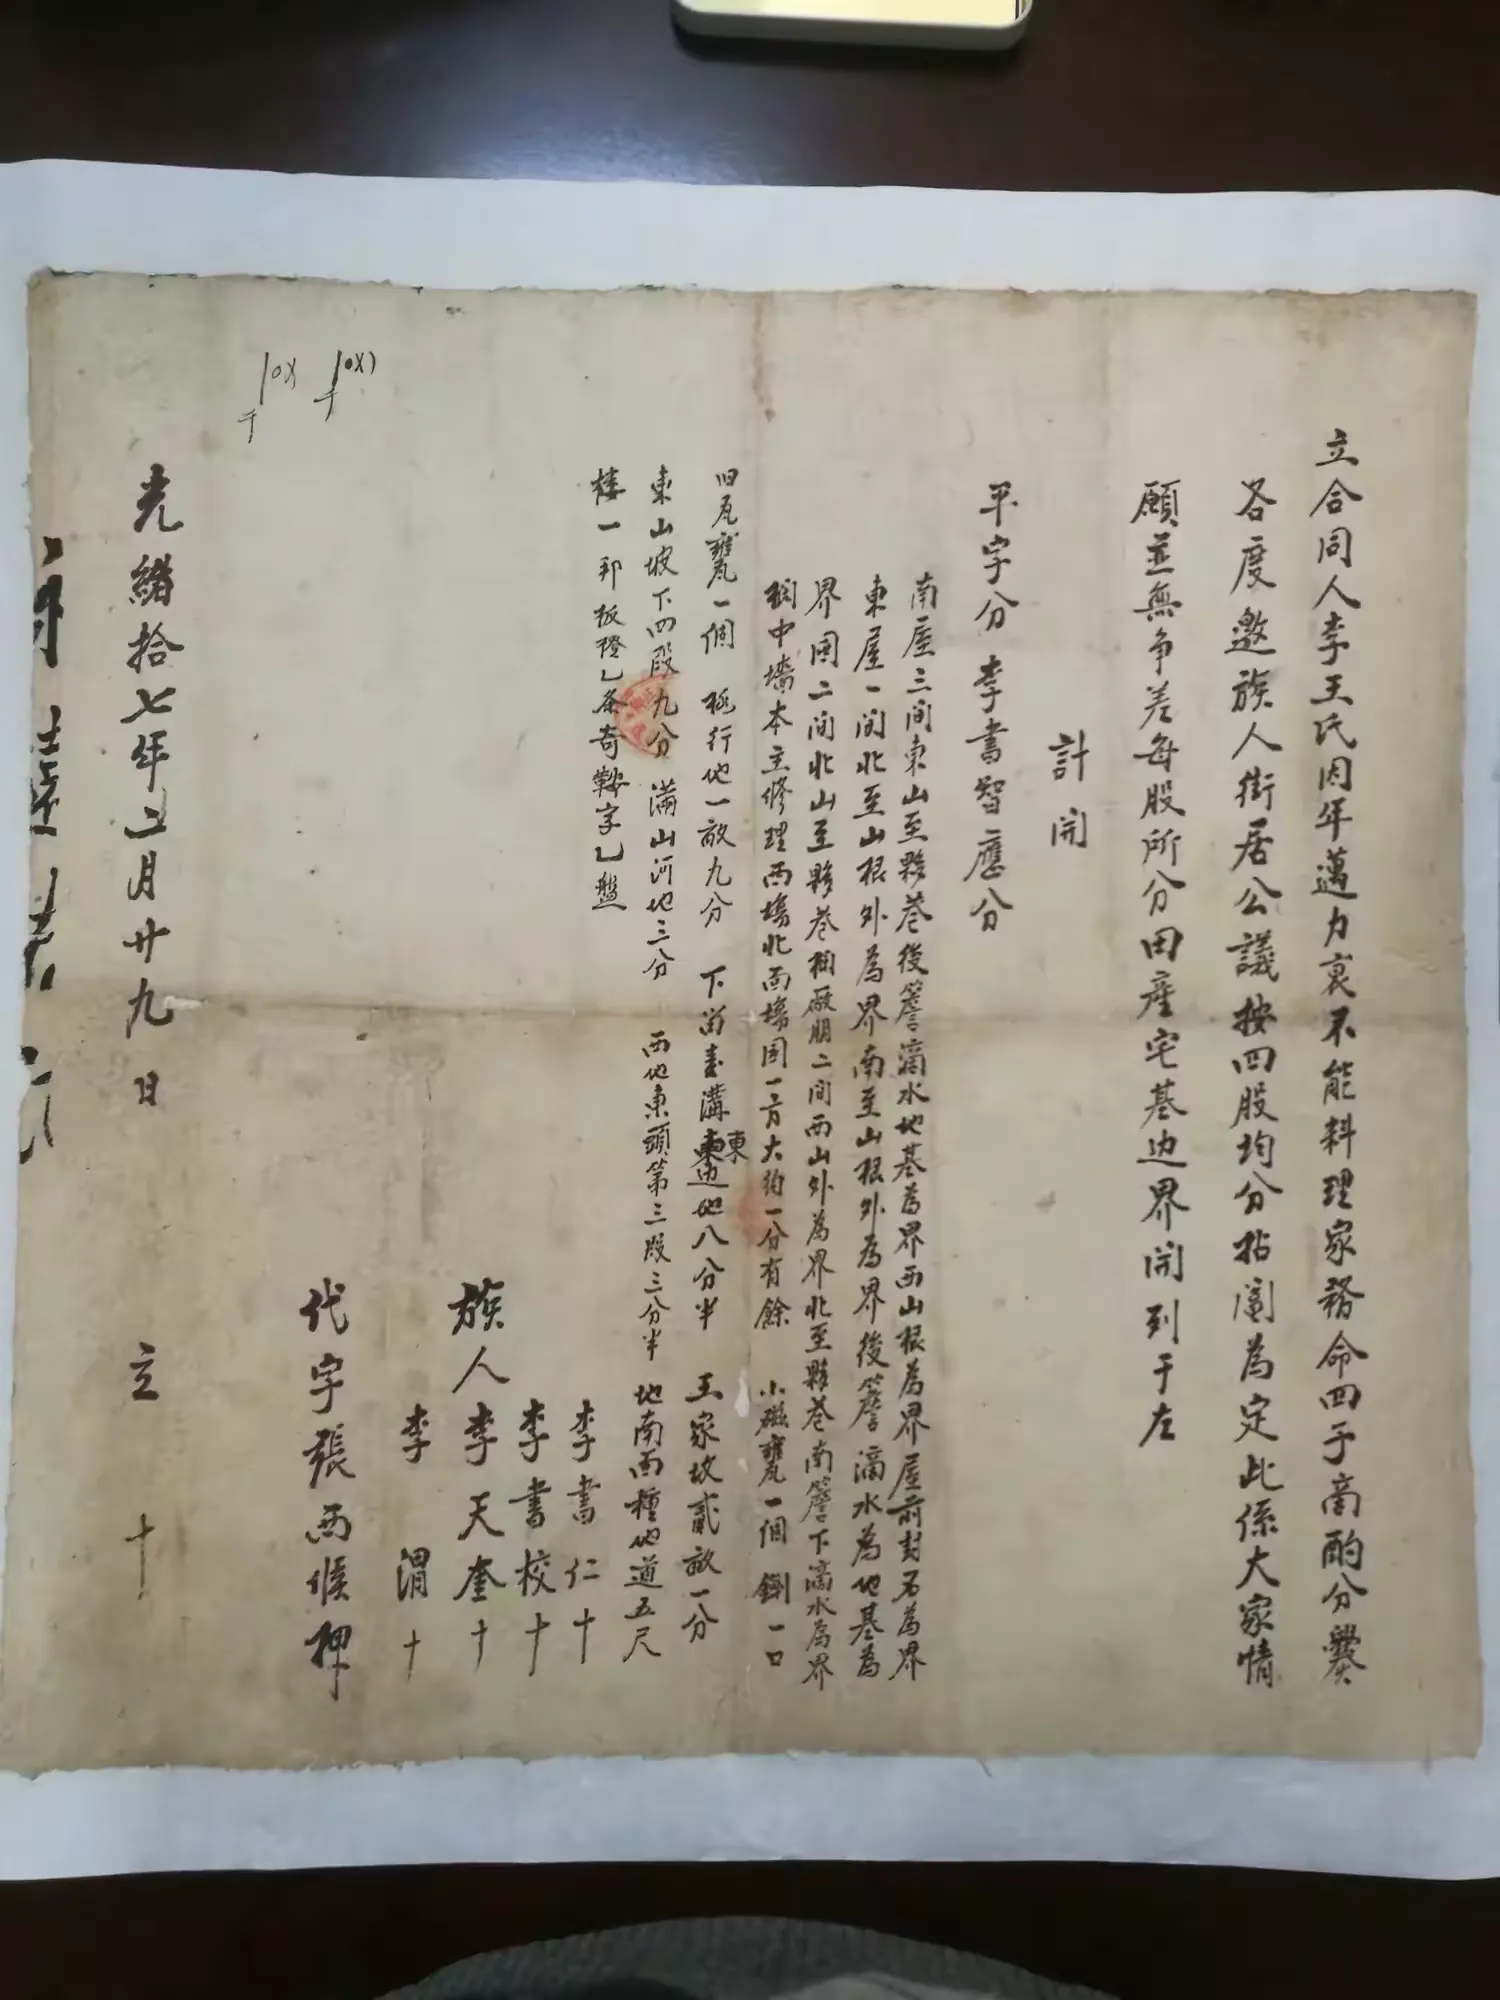 立合同人李王氏因年邁力衰不能料理家務命四子商酌分爨
各度邀族人街居公議按四股均分拈阄為定此係大家情
願並無争差每股所分田産宅基边界開列于左
計開
平字分 李書智應分
南屋三間東山至夥巷後簷滴水地基為界西山根為界屋前封石為界
東屋一間北至山根外為界南至山根外為界後簷滴水為地基為
界囤二間北山至夥巷棚廠朋二間西山外為界北至夥巷南簷下滴水為界
棚中墻本主修理西塲北面塲囤一方大約一分有餘 小磁甕一個 鍘一口
旧瓦甕一個 行地一畝九分 下溝東邊地八分半 王家坡貳畝一分
東山坡下四段九分 滿山河地三分 西地東頭第三段三分半 地南面種地道五尺
樓一 板櫈乚条 乚盤
李書仁十
李書校十
族人李天奎十
李 渭十
代字張西候押
光緒拾七年二月廿九日 立 十